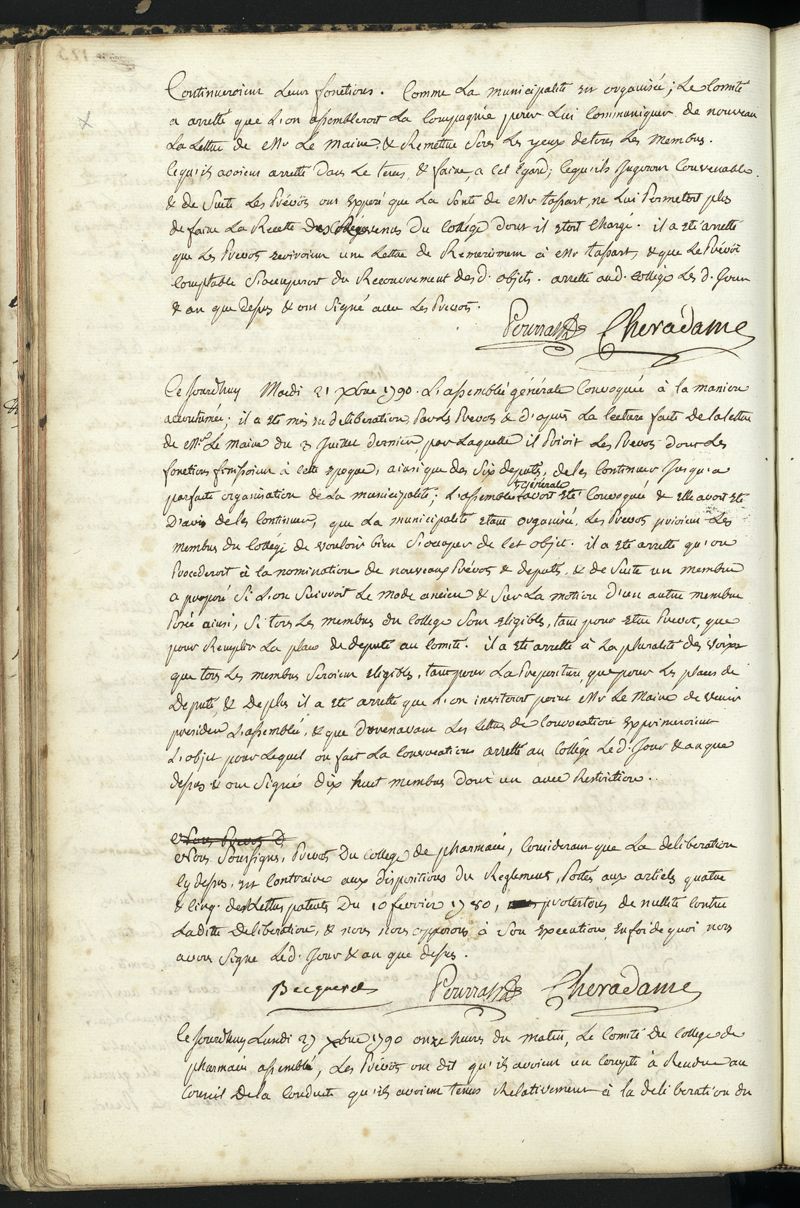 Continueroient Leurs fonctions. Comme La municipalité est organisée; Le Comité
a arretté que L'on assembleroit La Compagnie pour Lui Communiquer de nouveau
La Lettre de Mr Le Maire & Remettre sous Les yeux de tous Les Membres.
Ce qu'ils avoient arretté dans Le tems, & faire, a cet Egard; ce qu'ils Jugeront Convenable.
& de Suite Les Prévôts ont Exposé que La Santé de Mr tassart, ne Lui Permettoit plus
de faire La Recette des Revenus du Collége dont il Etoit Chargé. il a Eté arretté
que Les Prevots Ecriroient une Lettre de Remerciment à Mr tassart, & que Le Prévôt
Comptable S'occuperoit du Recouvrement des d. objets. arretté aud. Collége Les d. Jour
& an que Dessus & ont Signé avec Les Prevots.
Pourrat Cheradame
Ce Jourdhuy Mardi 21 Xbre 1790. L'assemblée générale Convoquée à la maniere
accoutumée; il a été mis en deliberation, Par Les Prevots & d'après La Lecture faite de la lettre
de Mr. Le Maire du 3 Juillet dernier, par Laquelle il Prioit Les Prevots dont Les
fonctions finissoient à cette époque, ainsi que des Six deputés, de les Continuer Jusqu'a
parfaite organisation de La municipalité; L'assemblée générale avoit été Convoquée & Elle avoit été
D'avis de les Continuer, que La municipalité étant organisée, Les Prevots prioient Les
membres du Collége de vouloir bien S'occuper de Cet objet. il a été arretté qu'on
Procederoit à la nomination de nouveaux Prévôts & deputés, & de Suite un membre
a proposé Si L'on Suivroit Le Mode ancien & Sur La motion d'un autre membre
Posée ainsi, Si tous Les membres du College Sont Eligibles, tant pour Etre Prevot, que
pour Remplir La place de deputé au Comité. il a été arretté à La pluralité des Voix
que tous Les membres Seroient Eligibles, tant pour La Prepositure, que pour Les places de
Deputé, & De plus il a été arretté que L'on inviteroit point Mr Le Maire de Venir
presider L'assemblée, & que Dorenavant Les Lettres de Convocation Exprimeroient
L'objet pour Lequel on fait La Convocation. arretté au Collége Le d. Jour & an que
dessus & ont Signés dix huit membres dont un avec Restriction.
& Nous Prevots D
Nous Soussignés, Prevots Du College de pharmacie, Considerant que La deliberation
Cy dessus, est Contraire aux dispositions du Reglement, Portés aux articles quatre
& Cinq. des Lettres patentes Du 10 fevrier 1780, protestons de nullité contre
Ladite deliberation, & nous nous opposons à Son Execution, En foi de quoi nous
avons Signé Led. Jour & an que dessus.
Becquerel Pourrat Cheradame
Ce Jourdhuy Lundi 27 Xbre 1790 onze heures du matin, Le Comité du College de
pharmacie assemblé, Les Prévôts ont dit qu'ils avoient un Compte à Rendre au
Conseil De la Conduite qu'ils avoient tenus Relativement à la deliberation du